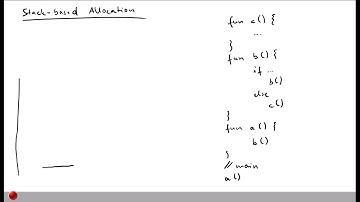 Stack-based Allocation
fun c() {
...
}
fun b() {
if ...
b()
else
c()
}
fun a() {
b()
}
// main
a()